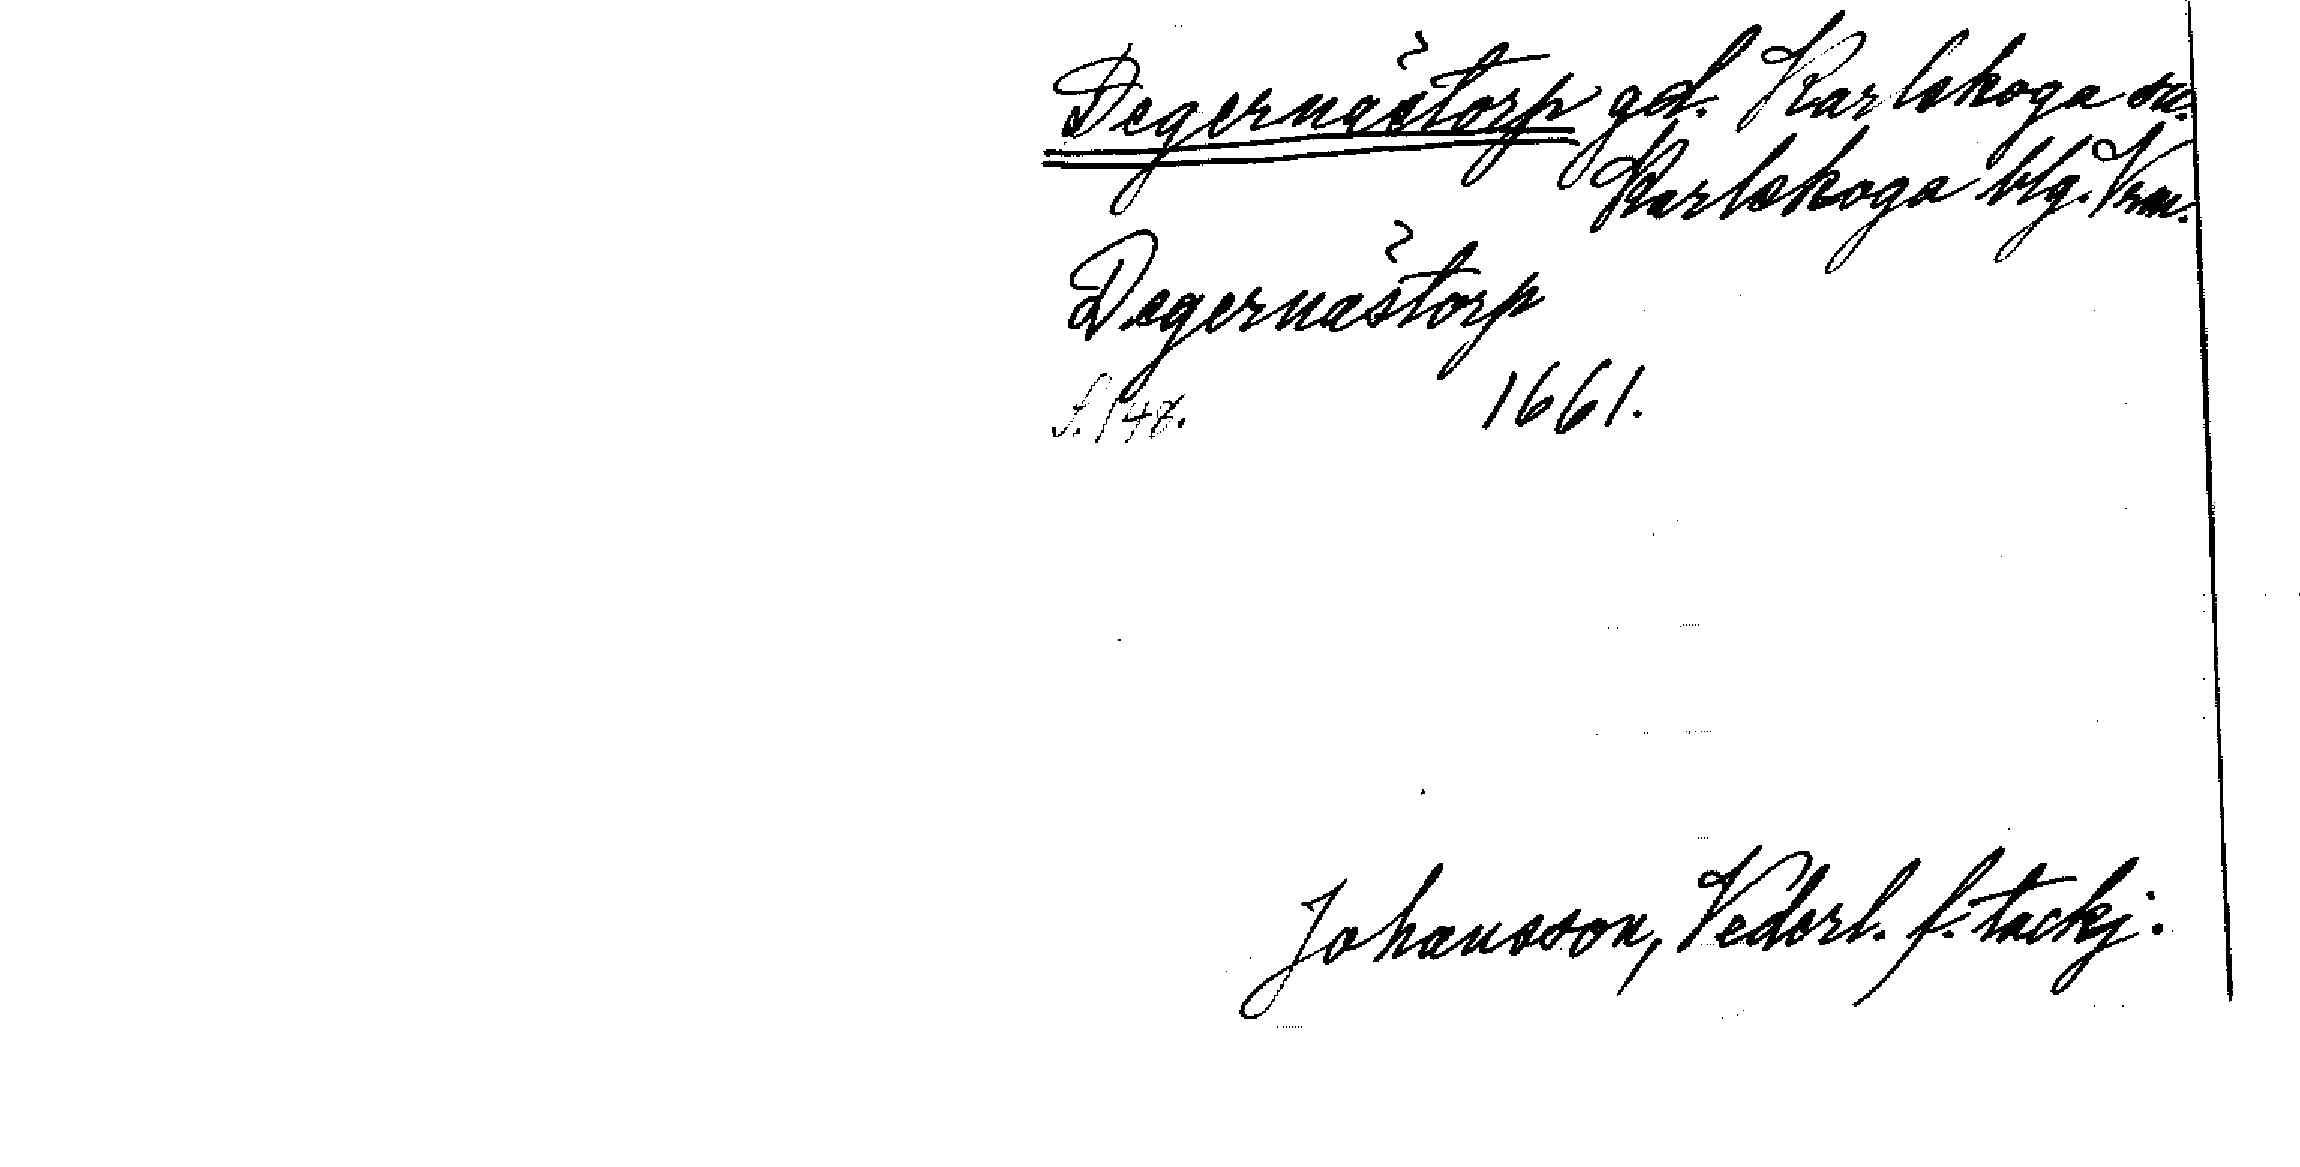 Degernästorp gd. Karlskoga sn.
Karlskoga blg. Vrm.
Degernästorp
S. 148. 1661.
Johansson, Vederl. f. tackj.